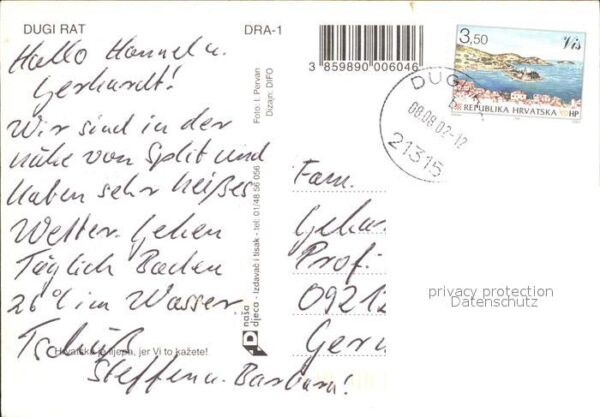 DUGI RAT
DRA-1
3 859890 006046
3,50
Vis
REPUBLIKA HRVATSKA HP
DUGI
08.08.02-12
21315
Hallo Hannel u.
Gerhardt!
Wir sind in der
nähe von Split und
haben sehr heißes
Wetter. Gehen
Täglich Baden
26°C im Wasser
Tschüß
Steffen u. Barbara!
Hrvatska je lijepa, jer Vi to kažete!
Foto: I. Pervan
Dizajn: DIFO
naša
djeca - Izdavač i tisak - tel.: 01/48 56 056
Fam.
Prof.
0921
privacy protection
Datenschutz